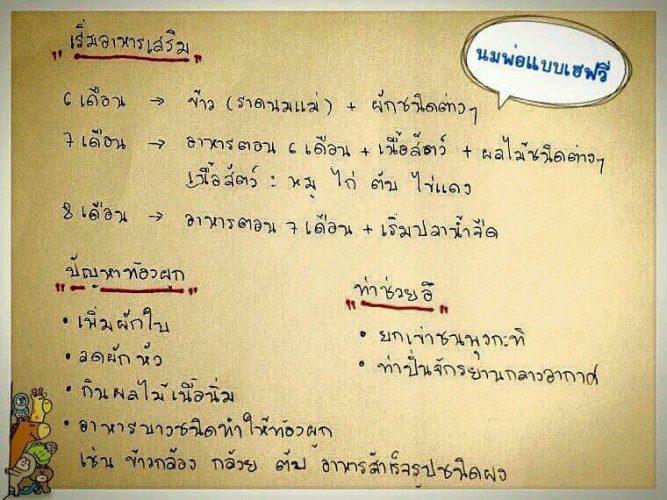 "เริ่มอาหารเสริม"
นมพ่อแบบเฮฟวี่
6 เดือน → ข้าว (ราดนมแม่) + ผักชนิดต่างๆ
7 เดือน → อาหารตอน 6 เดือน + เนื้อสัตว์ + ผลไม้ชนิดต่างๆ
เนื้อสัตว์ : หมู ไก่ ตับ ไข่แดง
8 เดือน → อาหารตอน 7 เดือน + เริ่มปลาน้ำจืด
"ปัญหาท้องผูก"
• เพิ่มผักใบ
• ลดผักหัว
• กินผลไม้เนื้อนิ่ม
• อาหารบางชนิดทำให้ท้องผูก
เช่น ข้าวกล้อง กล้วย ตับ อาหารสำเร็จรูปชนิดผง
"ท่าช่วยอึ"
• ยกเข่าชนพุงกะทิ
• ท่าปั่นจักรยานกลางอากาศ